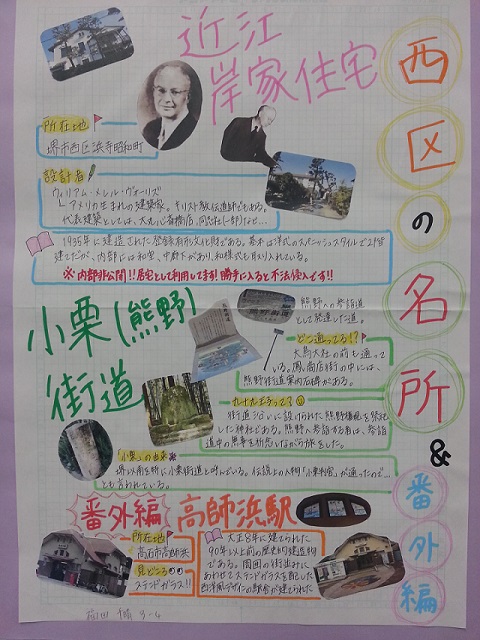 西区の名所&番外編
近江
岸家住宅
所在地
堺市西区浜寺昭和町
設計者
ウィリアム・メレル・ヴォーリズ
アメリカ生まれの建築家。キリスト教伝道師でもある。
代表建築としては、大丸心斎橋店、同志社(一部)など…
1935年に建造された登録有形文化財である。基本は洋式のスパニッシュスタイルで2階
建てだが、内部には和室、中廊下があり、和様式も取り入れている。
※内部非公開!!居宅として利用してます!勝手に入ると不法侵入です!!
小栗(熊野)
街道
熊野への参詣道
として発達した道。
どこ通ってる!?
大鳥大社の前を通って
いる。鳳商店街の中には、
熊野街道案内石碑がある。
九十九王子って?
街道沿いに設けられた熊野権現を祭祀
した神社である。熊野へ参詣する者は、参詣
道中の無事を祈念しながら旅をした。
「小栗」の由来
堺以南を特に小栗街道と呼んでいる。伝説上の人物「小栗判官」が通ったので…
とも言われている。
番外編 高師浜駅
所在地
高石市高師浜
見どころ
ステンドガラス!!
大正8年に建てられた
90年以上前の歴史的建造物
である。周囲の街並みに
あわせてステンドグラスを配した
西洋風デザインの駅舎が建てられた
3-4